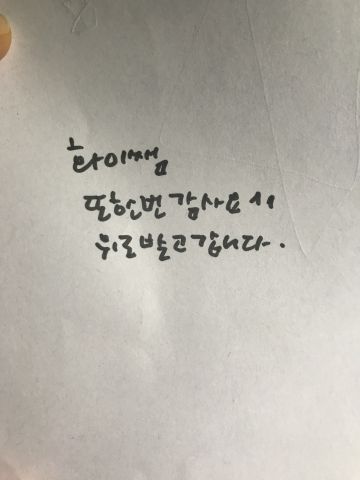 화이쌤
또한번 감사요^^
위로받고갑니다.